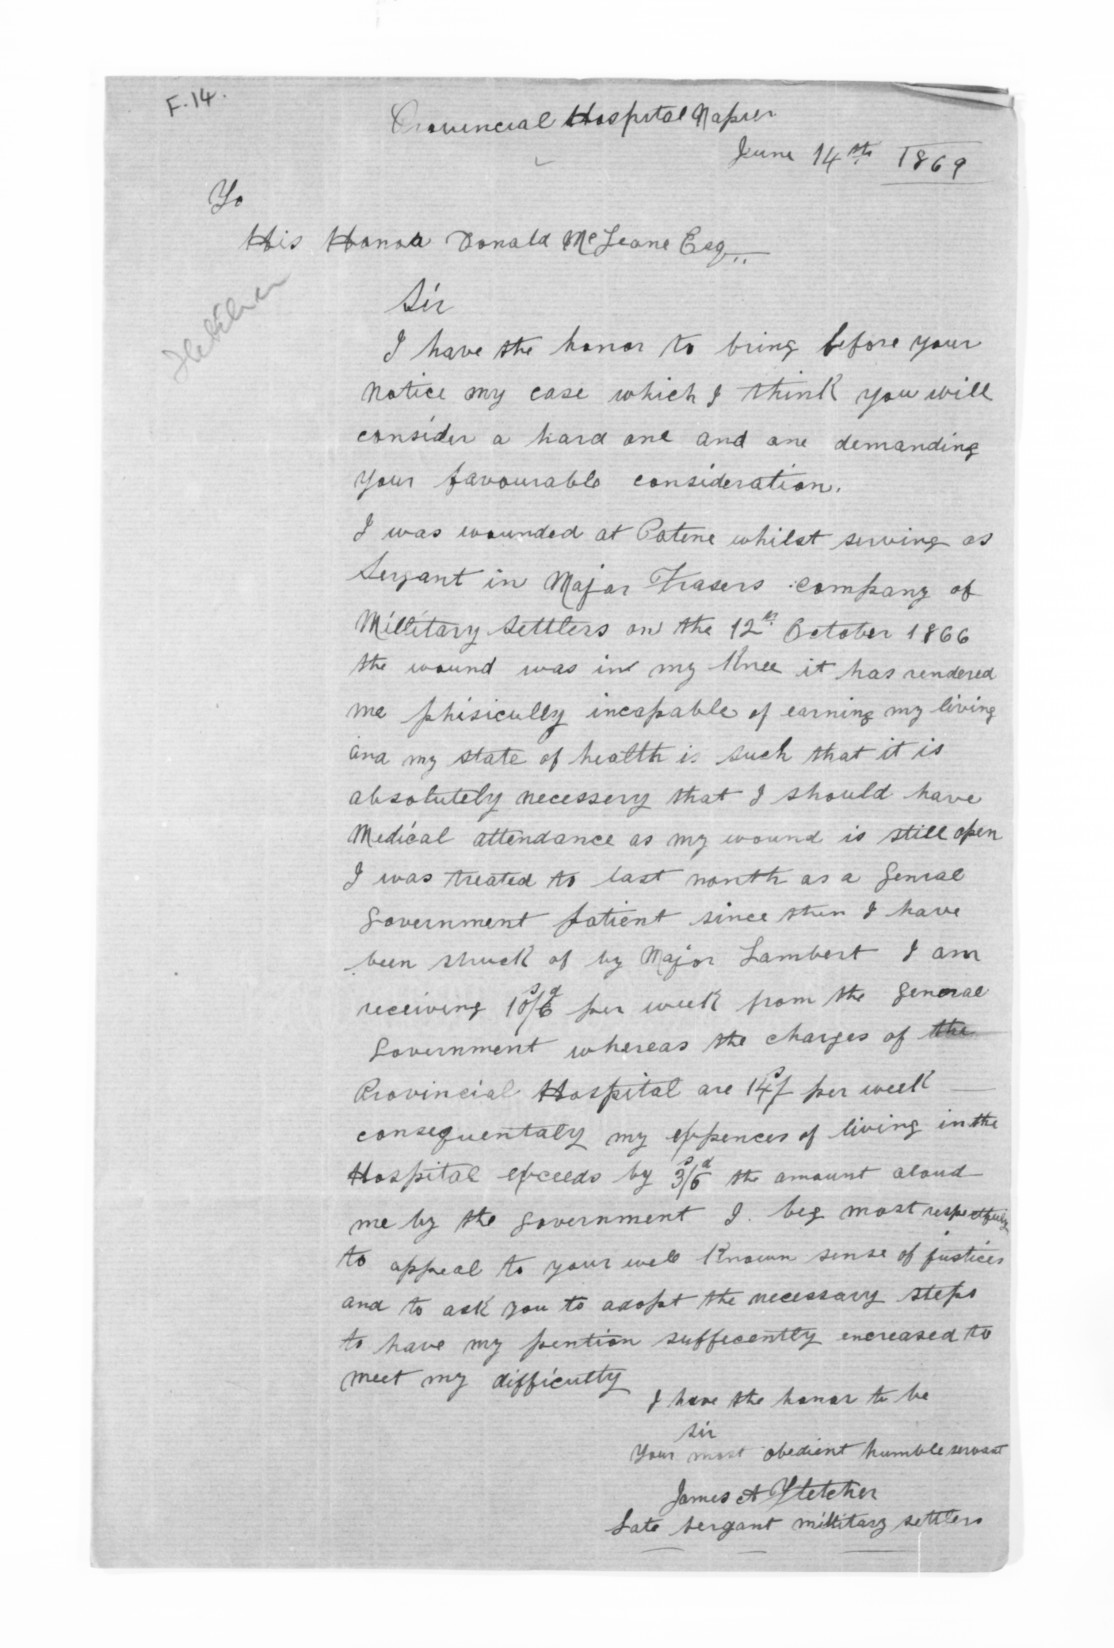 F.14.
Provincial Hospital Napier
June 14th 1869
To
His Honor Donald McLeane Esq
Fletcher
Sir
I have the honor to bring before your
notice my case which I think you will
consider a hard one and one demanding
your favourable consideration.
I was wounded at Patene whilst serving as
Sergant in Major Frasers company of
Millitary Settlers on the 12th October 1866
the wound was in my Knee it has rendered
me phisicully incapable of earning my living
and my state of health is such that it is
absolutely necessery that I should have
Medical attendance as my wound is still open
I was treated to last month as a Genral
Government patient since then I have
been struck of by Major Lambert I am
receiving 10s/6d per week from the General
Government whereas the charges of the
Provincial Hospital are 14s/ per week
consequentaly my expences of living in the
Hospital exceeds by 3s/6d the amount aloud
me by the government I beg most respectfully
to appeal to your well Known sense of justices
and to ask you to adopt the necessary steps
to have my pention sufficently encreased to
meet my difficulty
I have the honor to be
sir
Your most obedient humble servant
James A Fletcher
Late Sergant millitary settlers